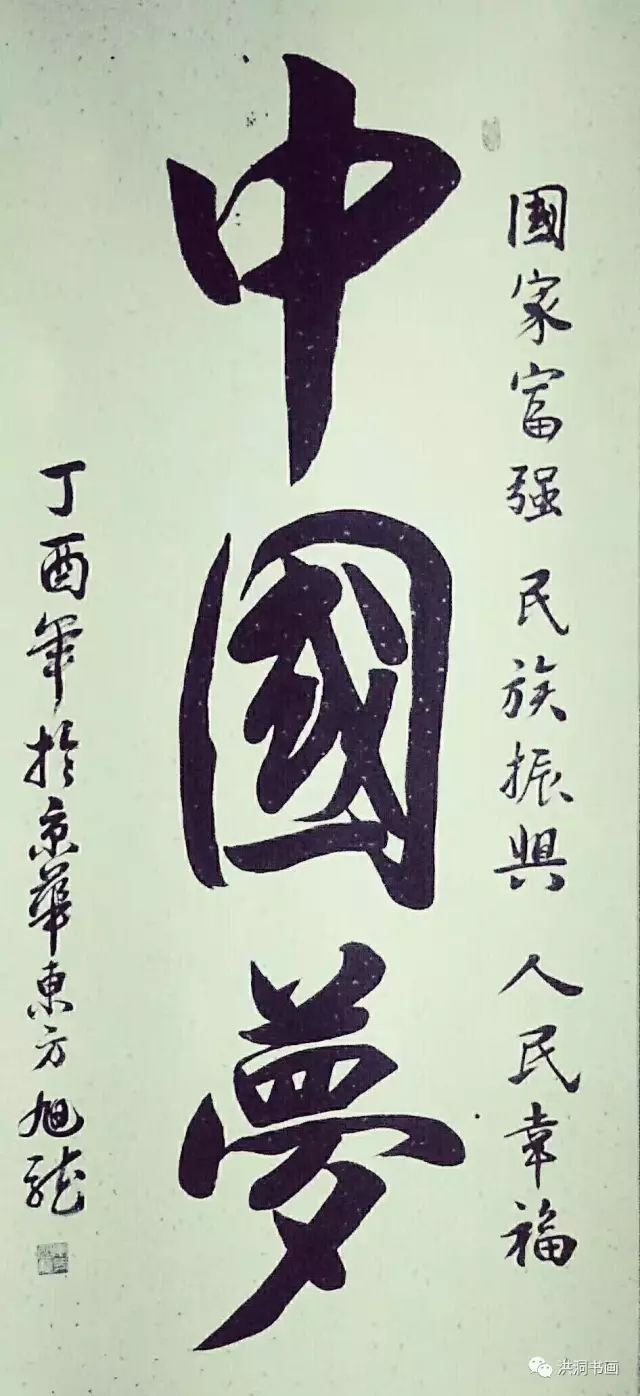 國家富强 民族振興 人民幸福
中國夢
丁酉年於京華東方旭龍
洪洞书画